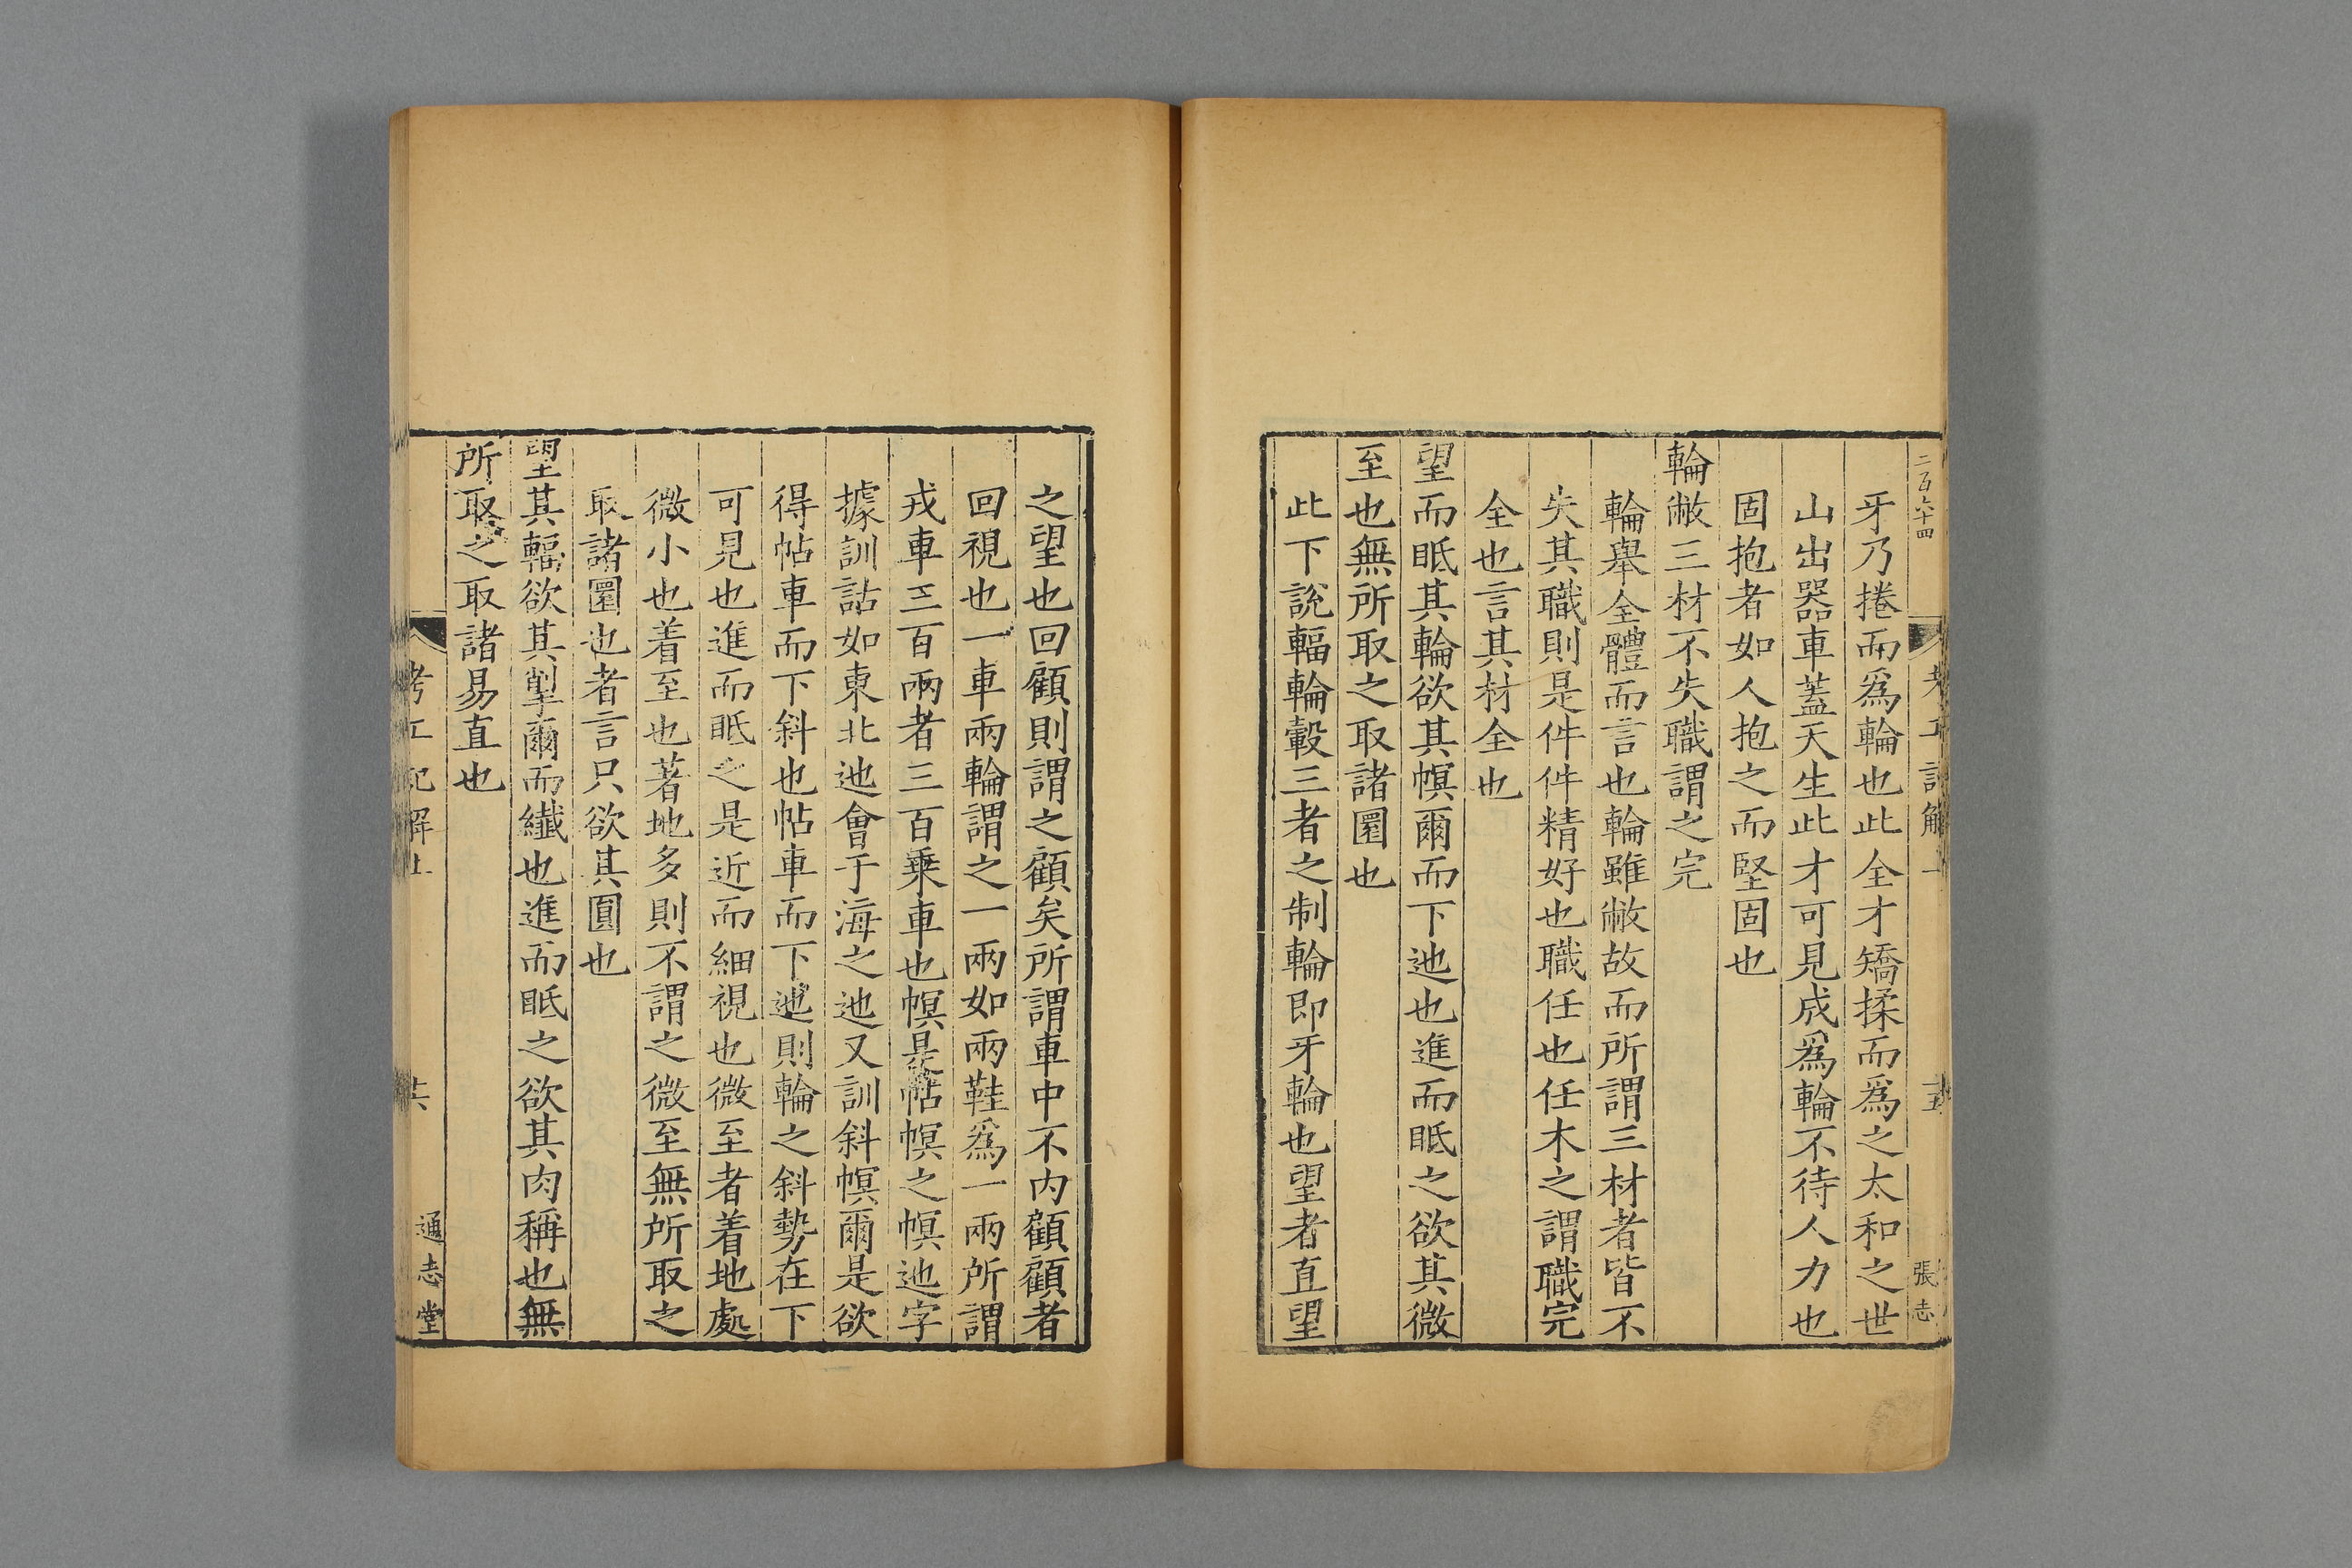 二百六十四
考工記解上
十五
張志
牙乃捲而爲輪也此全才矯揉而爲之太和之世
山出器車蓋天生此才可見成爲輪不待人力也
固抱者如人抱之而堅固也
輪敝三材不失職謂之完
輪舉全體而言也輪雖敝故而所謂三材者皆不
失其職則是件件精好也職任也任木之謂職完
全也言其材全也
望而眡其輪欲其幎爾而下迆也進而眡之欲其微
至也無所取之取諸圜也
此下說輻輪轂三者之制輪即牙輪也望者直望
之望也回顧則謂之顧矣所謂車中不內顧顧者
回視也一車兩輪謂之一兩如兩鞋爲一兩所謂
戎車三百兩者三百乗車也幎是帖幎之幎迆字
據訓詁如東北迆會于海之迆又訓斜幎爾是欲
得帖車而下斜也帖車而下迆則輪之斜勢在下
可見也進而眡之是近而細視也微至者着地處
微小也着至也著地多則不謂之微至無所取之
取諸圜也者言只欲其圓也
望其輻欲其掣爾而纖也進而眡之欲其肉稱也無
所取之取諸易直也
考工記解上
十六
通志堂